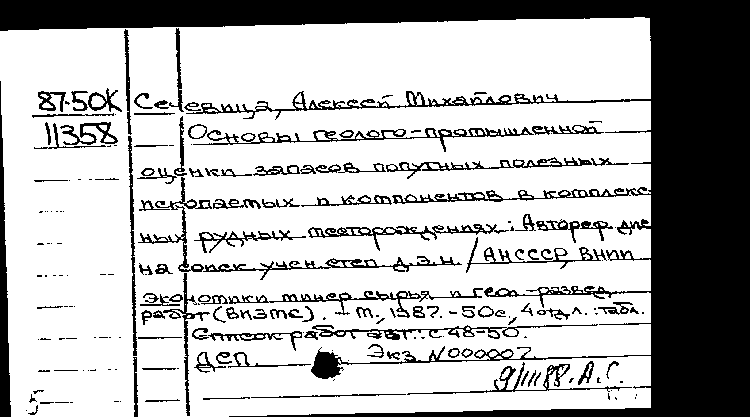 87-50К Сечевица, Алексей Михайлович
11358 Основы геолого-промышленной
оценки запасов попутных полезных
ископаемых и компонентов в комплекс-
ных рудных месторождениях: Автореф. дис
на соиск. учен. степ. д.э.н. / АН СССР, ВНИИ
экономики минер. сырья и геол.-развед.
работ (ВИЭМС). - М., 1987. - 50с., 4 отд.л. табл.
Список работ авт.: с 48-50.
ДСП. Экз. N000007.
9/III 88. А.С.
5